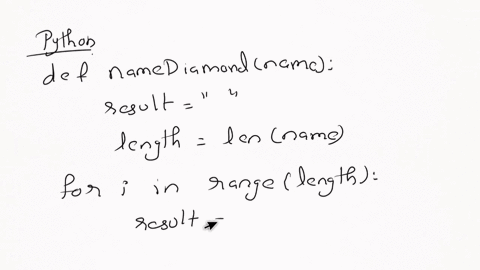 Python
def nameDiamond(name):
result = " "
length = len(name)
for i in range(length):
result -